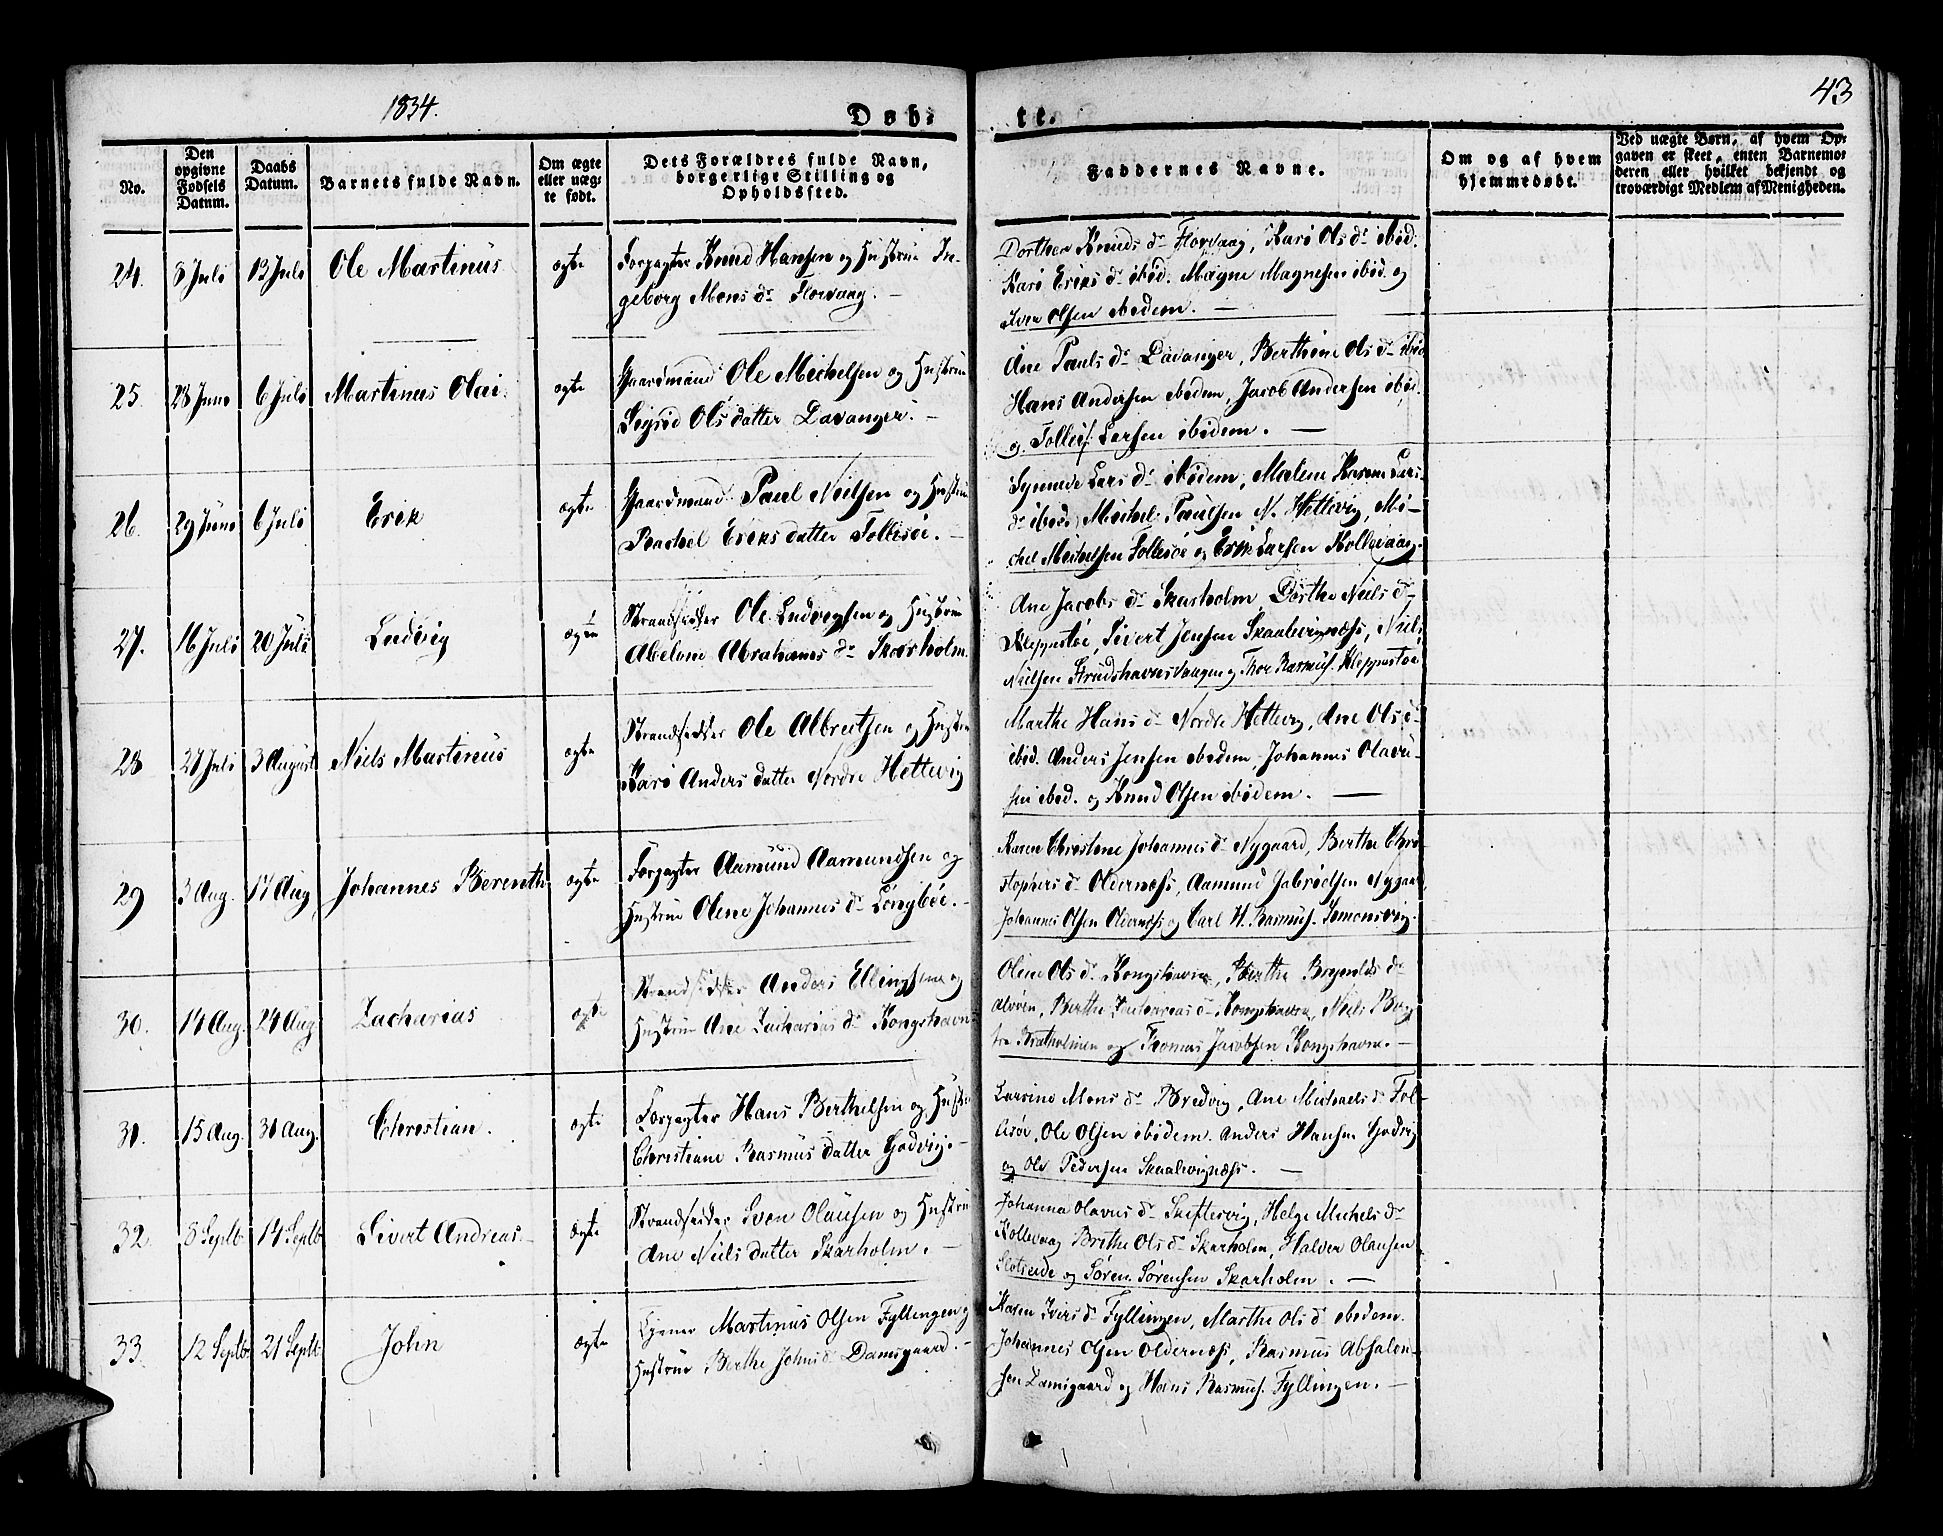 1834.
Døb-
te.
43
No.
Den opgivne Fødsels Datum.
Daabs Datum.
Barnets fulde Navn.
Om ægte eller uægte født.
Dets Forældres fulde Navn, borgerlige Stilling og Opholdssted.
Faddernes Navne.
Om og af hvem hjemmedøbt.
Ved uægte Børn, af hvem Opgaven er skeet, enten Barnemoderen eller hvilket bekjendt og troværdigt Medlem af Menigheden.
24. 8 Juli 12 Juli Ole Martinus ægte Forpagter Knud Hansen og Hustrue In-
geborg Mons dr Florvaag. —
Dorthea Knuds dr Florvaag, Kari Ols dr ibid.
Kari Eriks dr ibid. Magne Magnesen ibid. og
Iver Olsen ibidem. —
25. 28 Juni 6 Juli Martinus Olai ægte Gaardmand Ole Michelsen og Hustrue
Sigrid Olsdatter Davanger. —
Ane Pauls dr Davanger, Berthine Ols dr ibid
Hans Andersen ibidem, Jacob Andersen ibid.
og Tolleif Larsen ibidem. —
26. 29 Juni 6 Juli Erik ægte Gaardmand Paul Nielsen og Hustrue
Rachel Eriksdatter Follesøe. —
Synneve Lars dr ibidem, Malene Karene Lars
dr ibid. Michel Paulsen N. Hettevig, Mi-
chel Michelsen Follesøe og Erik Larsen Kollevaag.
27. 16 Juli 20 Juli Ludvig ægte Strandsidder Ole Ludvigsen og Hustrue
Abelone Abrahams dr Skarholm.
Ane Jacobs dr Skarholm, Dorthe Niels dr
Kleppestøe, Sivert Jensen Skaalevignæss, Niels
Nielsen Strudshavnsvaagen og Thor Rasmus. Kleppestøe
28 27 Juli 3 August Niels Martinus ægte Strandsidder Ole Albrectsen og Hustrue
Kari Andersdatter Nordre Hettevig
Marthe Hans dr Nordre Hettevig, Ane Ols dr
ibid. Anders Jensen ibidem, Johannes Olavi-
sen ibid. og Knud Olsen ibidem. —
29 3 Aug. 17 Aug Johannes Berenth ægte Forpagter Aamund Aamundsen og
Hustrue Olene Johannes dr Lyngbøe. —
Karen Christine Johannes dr Nygaard, Berthe Chri-
stophers dr Oldernæss, Aamund Gabrielsen Nygaar
Johannes Olsen Oldernæss og Carl H. Rasmus. Simonsvig.
30. 14 Aug. 24 Aug Zacharias ægte Strandsidder Anders Ellingsen og
Hustrue Ane Zacharias dr Kongshavn
Olene Ols dr Kongshavn, Berthe Brynilds dr
Alvøen, Berthe Zacharias dr Kongshavn, Niels
Bratholmen og Thomas Jacobsen Kongshavn. —
31. 15 Aug. 31 Aug. Christian. ægte Forpagter Hans Berthelsen og Hustr
Christiane Rasmusdatter Godvig. —
Larsine Mons dr Bredvig, Ane Michaels dr Fol-
lesøe, Ole Olsen ibidem. Anders Hansen Godvig
og Ole Pedersen Skaalevignæss. —
32. 8 Septb 14 Septb Sivert Andreas ægte Strandsidder Sven Olausen og Hustrue
Ane Nielsdatter Skarholm. —
Johanna Olavus dr Skiftesvig, Helge Michels dr
Kollevaag Brithe Ols dr Skarholm, Halvor Olausen
og Søren Sørensen Skarholm. —
33. 12 Septb. 21 Septb. John ægte Martinus Olsen Fyllingen og
Hustrue Berthe Johns dr Damsgaard. —
Maren Ivers dr Fyllingen, Marthe Ols dr ibidem.
Johannes Olsen Oldernæss, Rasmus Absalon-
sen Damsgaard og Hans Rasmus. Fyllingen. —